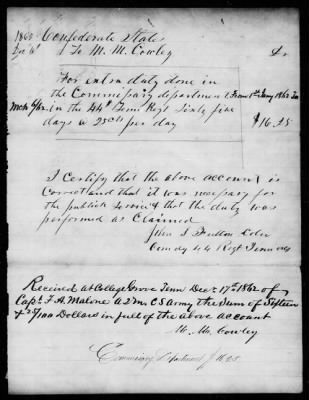 1862 Confederate States
Dec 16 To M. M. Cowley Dr
For extra duty done in
the Commissary department from 1st Jany 1862 to
Mch 6/62 in the 44th Tenn Regt Sixty five
days @ 25cts per day $16.25
I Certify that the above account is
Correct and that it was necessary for
the publick Service & that the duty was
performed as Claimed
John S. Fulton Colo
Comdg 44 Regt Tenn Vols
Received at College Grove Tenn Decr 17th 1862 of
Capt F. A. Malone A Q M C S Army the Sum of Sixteen
& 25/100 Dollars in full of the above account
M. M. Cowley
Commissary Department $16.25